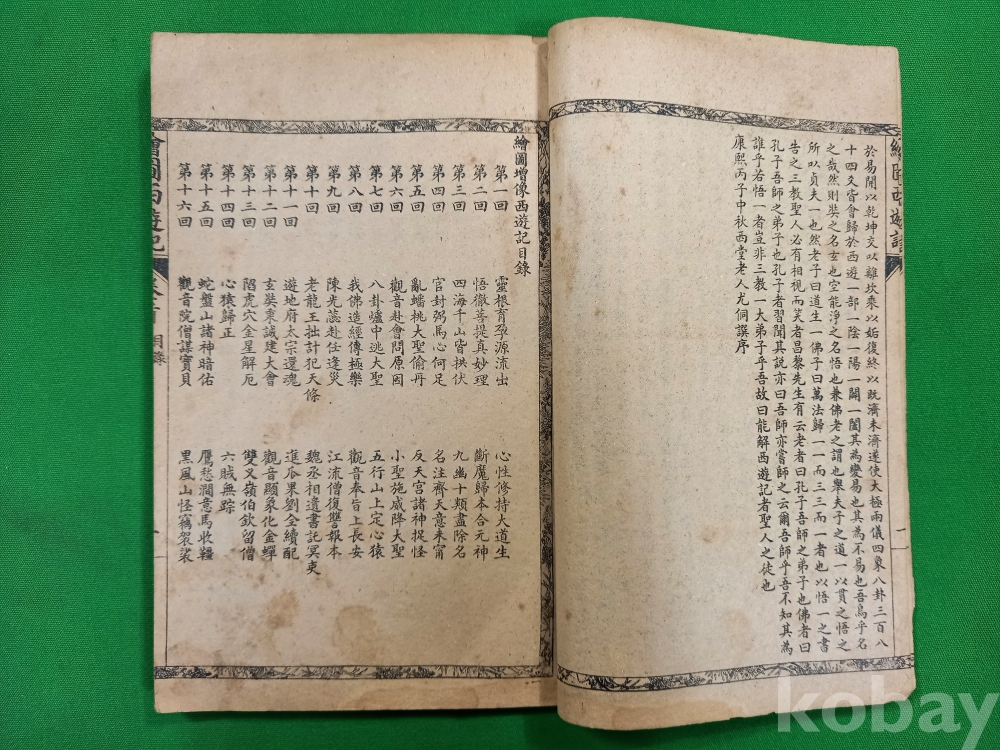 繪圖西遊記
於易開以乾坤交以離坎乘以姤復終以既濟未濟遂使太極兩儀四象八卦三百八
十四爻皆會歸於西遊一部一陰一陽一開一闔其為變易也其為不易也吾烏乎名
之哉然則奘之名玄也空能淨之名悟也兼佛老之謂也舉夫子之道一以貫之悟之
所以貞夫一也然老子曰道生一佛子曰萬法歸一一而三三而一者也以悟一之書
告之三教聖人必有相視而笑者昌黎先生有云老者曰孔子吾師之弟子也佛者曰
孔子吾師之弟子也孔子者習聞其說亦曰吾師亦嘗師之云爾吾師乎吾不知其為
誰乎若悟一者豈非三教一大弟子乎吾故曰能解西遊記者聖人之徒也
康熙丙子中秋西堂老人尤侗譔序
一
繪圖增像西遊記目錄
第一回 靈根育孕源流出 心性修持大道生
第二回 悟徹菩提真妙理 斷魔歸本合元神
第三回 四海千山皆拱伏 九幽十類盡除名
第四回 官封弼馬心何足 名注齊天意未甯
第五回 亂蟠桃大聖偷丹 反天宮諸神捉怪
第六回 觀音赴會問原因 小聖施威降大聖
第七回 八卦爐中逃大聖 五行山上定心猿
第八回 我佛造經傳極樂 觀音奉旨上長安
第九回 陳光蕊赴任逢災 江流僧復讐報本
第十回 老龍王拙計犯天條 魏丞相遺書託冥吏
第十一回 遊地府太宗還魂 進瓜果劉全續配
第十二回 玄奘秉誠建大會 觀音顯象化金蟬
第十三回 陷虎穴金星解厄 雙叉嶺伯欽留僧
第十四回 心猿歸正 六賊無踪
第十五回 蛇盤山諸神暗佑 鷹愁澗意馬收韁
第十六回 觀音院僧謀寶貝 黑風山怪竊袈裟
繪圖西遊記
目錄
一
kobay